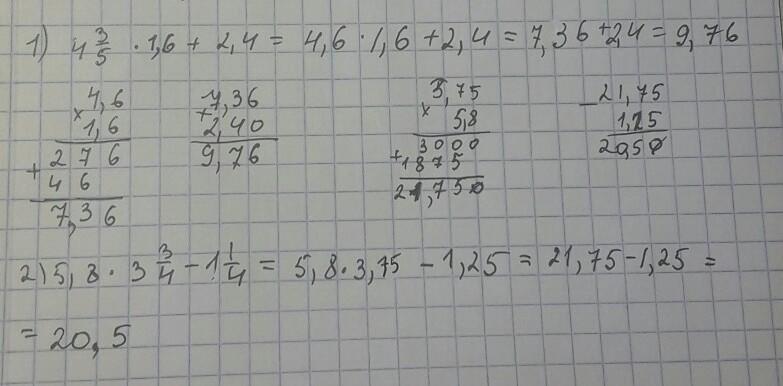 1) 4 3/5 · 1,6 + 2,4 = 4,6 · 1,6 + 2,4 = 7,36 + 2,4 = 9,76
× 4,6
1,6
+ 276
46
7,36
+ 7,36
2,40
9,76
× 3,75
5,8
+ 3000
1875
21,750
- 21,75
1,25
20,50
2) 5,8 · 3 3/4 - 1 1/4 = 5,8 · 3,75 - 1,25 = 21,75 - 1,25 =
= 20,5